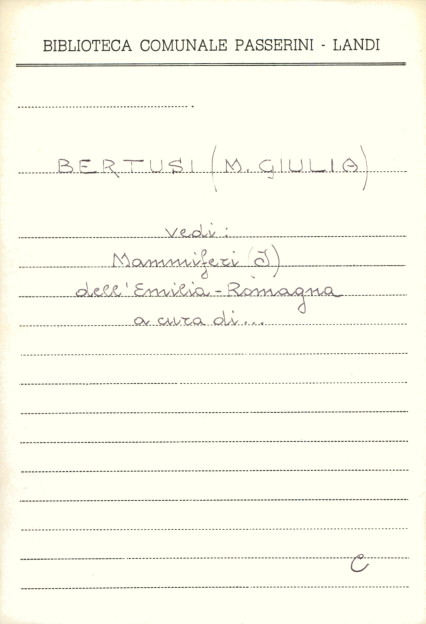 BIBLIOTECA COMUNALE PASSERINI - LANDI
BERTUSI (M. GIULIA)
vedi:
Mammiferi (I)
dell'Emilia-Romagna
a cura di...
C